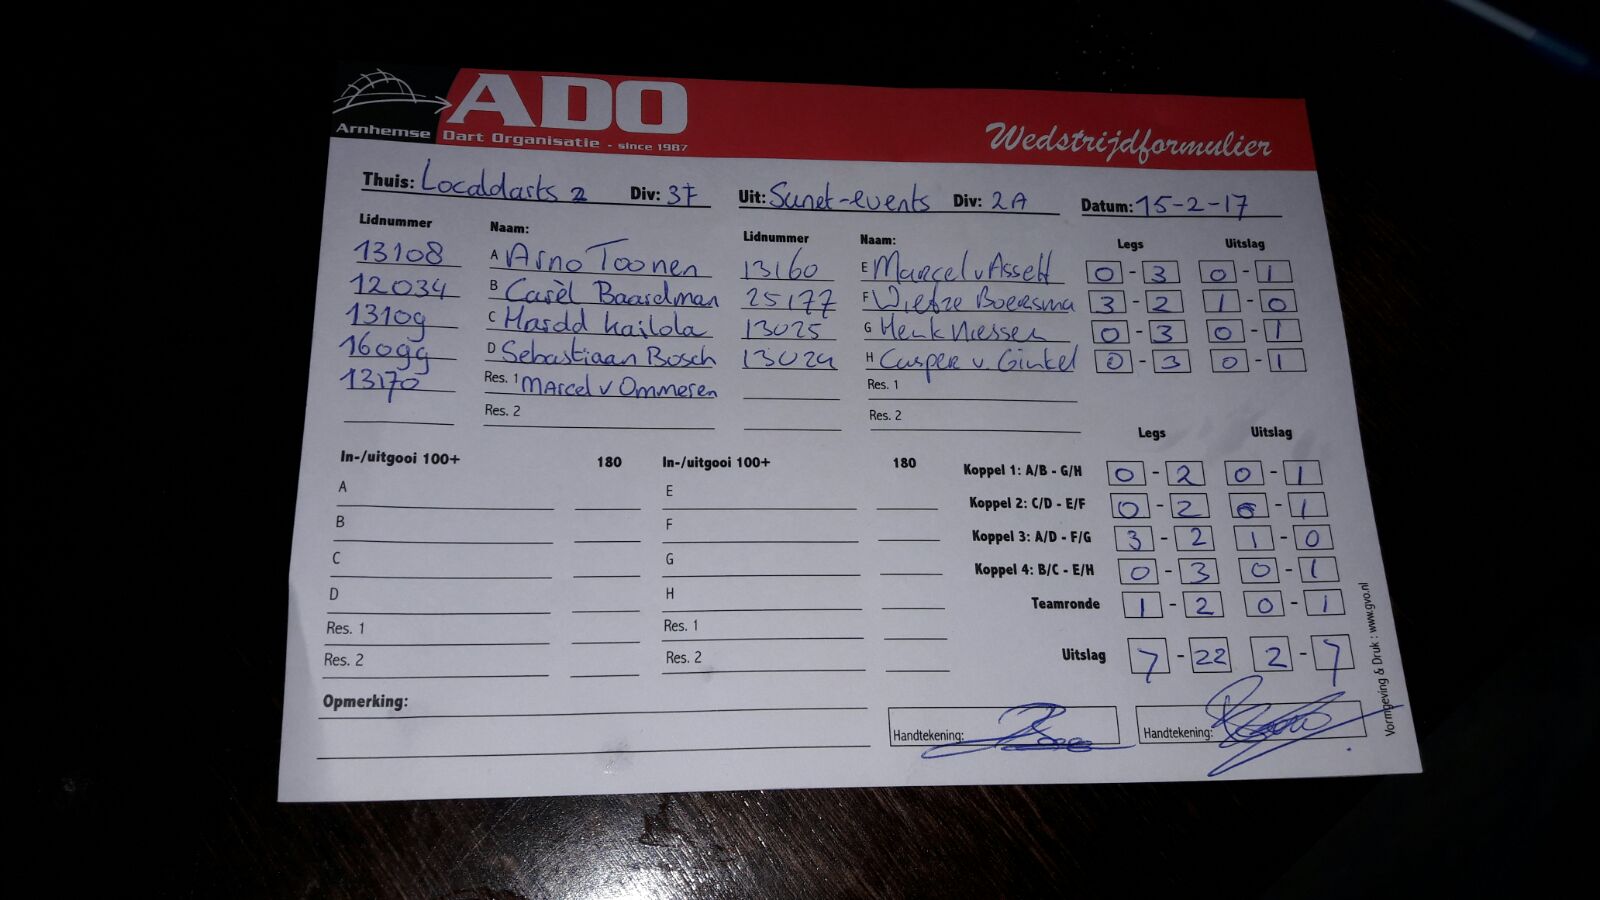 ADO
Arnhemse Dart Organisatie - since 1987
Wedstrijdformulier
Thuis: Localdarts 2 Div: 3F Uit: Sunet-events Div: 2A Datum: 15-2-17
Lidnummer Naam: Lidnummer Naam: Legs Uitslag
13108 A Arno Toonen 13160 E Marcel v Asselt 0 - 3 0 - 1
12034 B Carèl Baardman 25177 F Wietze Boersma 3 - 2 1 - 0
13109 C Hardd Kailola 13025 G Henk Niessen 0 - 3 0 - 1
16099 D Sebastiaan Bosch 13024 H Casper v. Ginkel 0 - 3 0 - 1
13170 Res. 1 Marcel v Ommeren Res. 1
Res. 2 Res. 2
Legs Uitslag
In-/uitgooi 100+ 180 In-/uitgooi 100+ 180 Koppel 1: A/B - G/H 0 - 2 0 - 1
A E Koppel 2: C/D - E/F 0 - 2 0 - 1
B F Koppel 3: A/D - F/G 3 - 2 1 - 0
C G Koppel 4: B/C - E/H 0 - 3 0 - 1
D H Teamronde 1 - 2 0 - 1
Res. 1 Res. 1
Res. 2 Res. 2 Uitslag 7 - 22 2 - 7
Opmerking:
Handtekening: Handtekening:
Vormgeving & Druk : www.gvo.nl